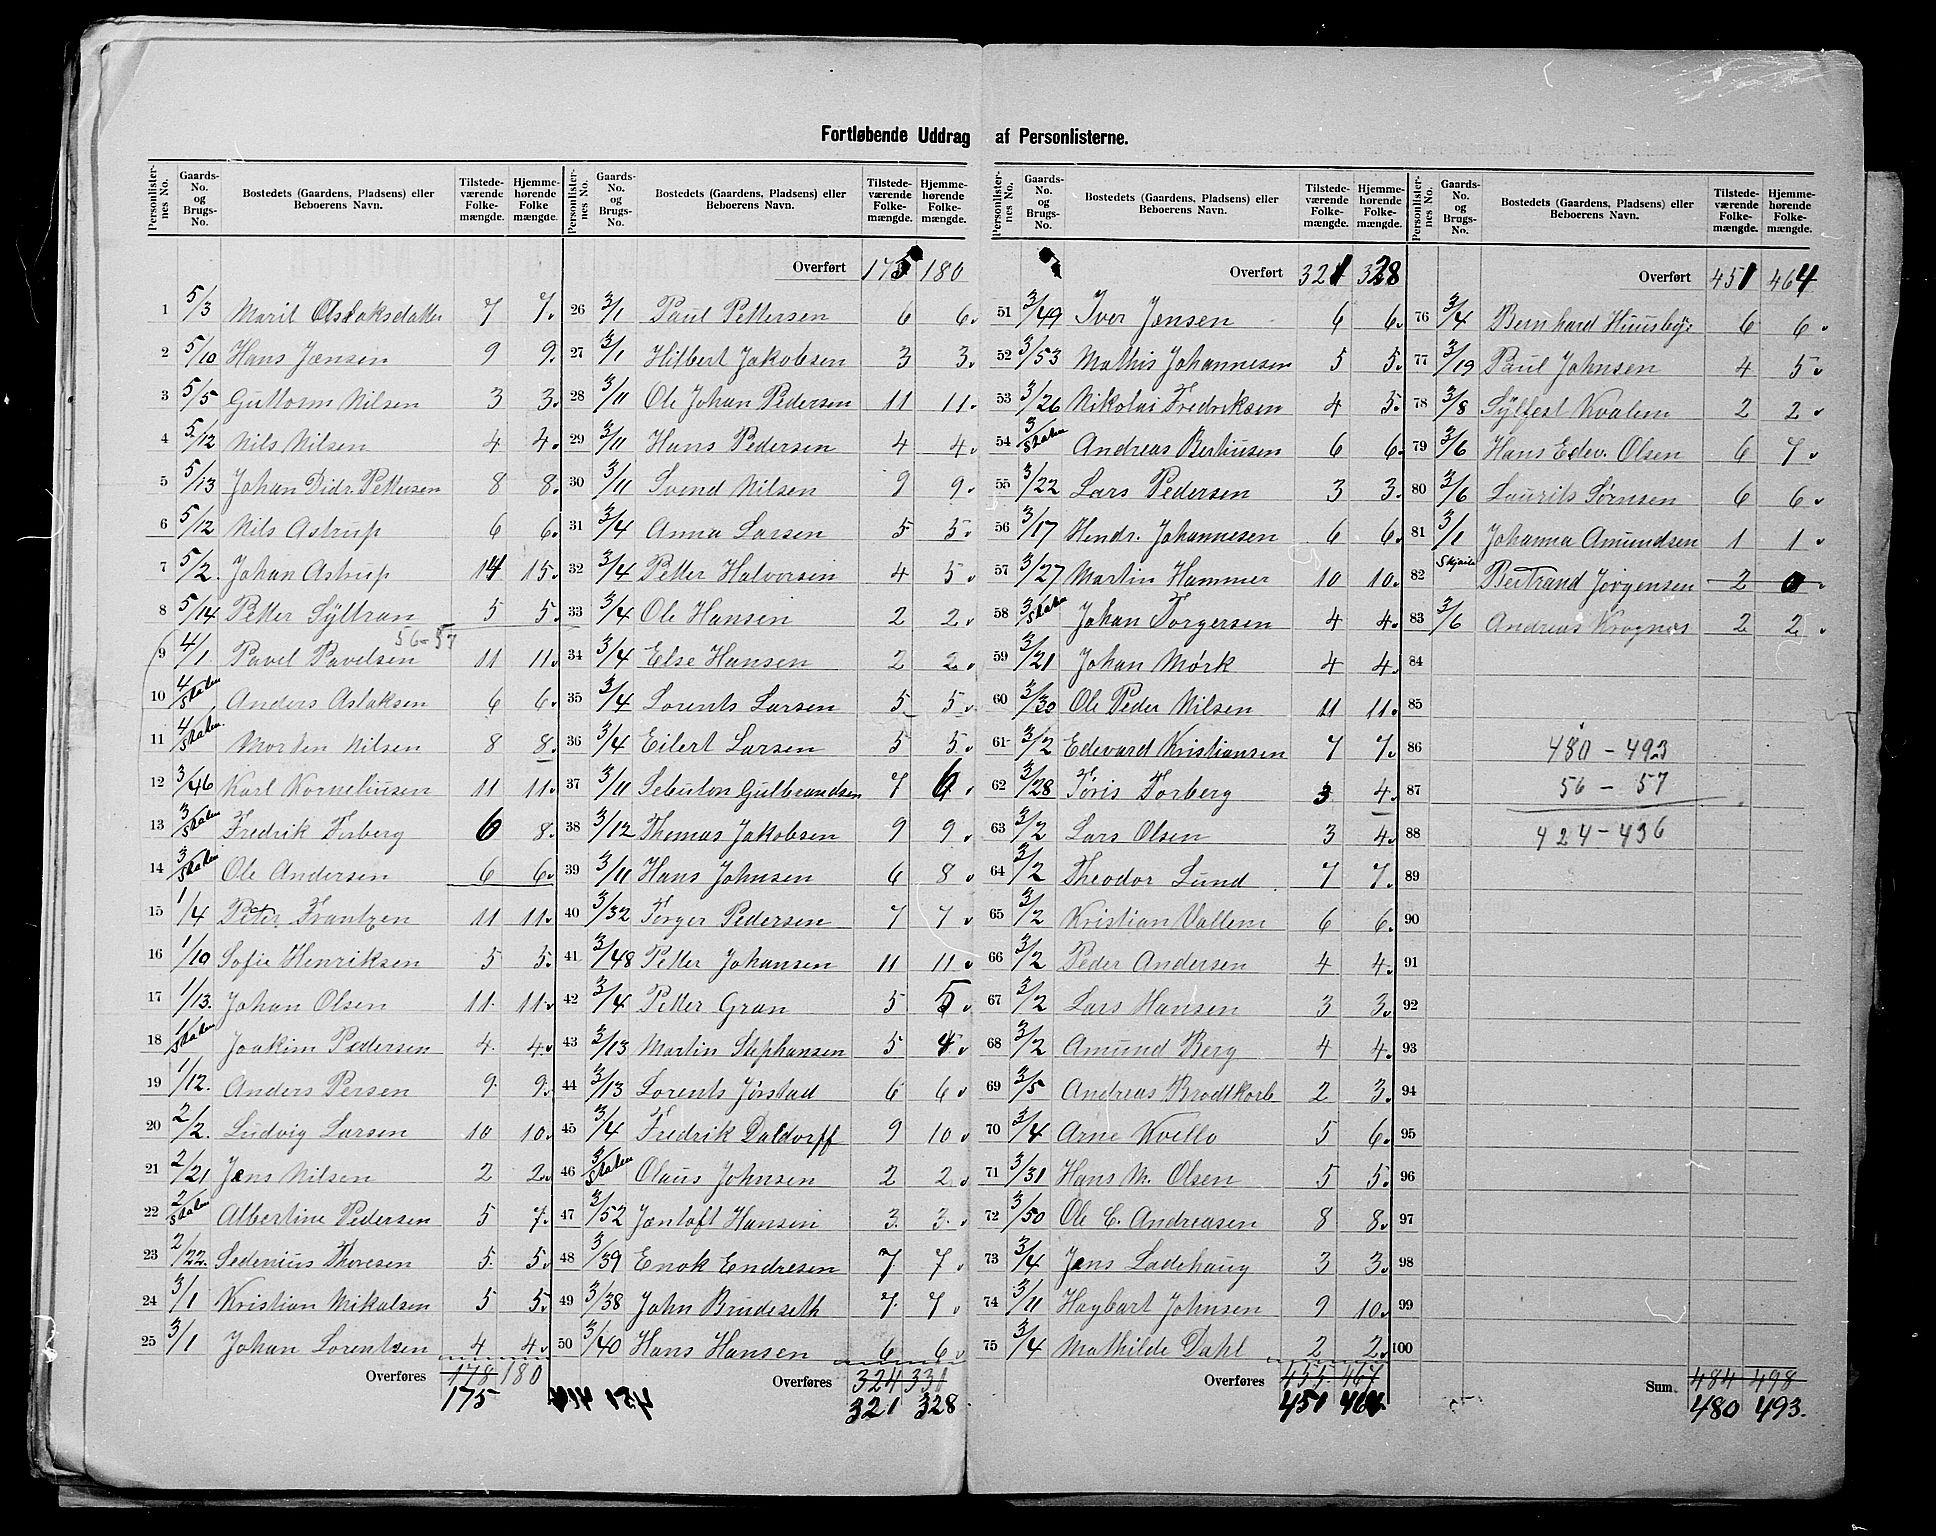 Fortløbende Uddrag af Personlisterne.
Personlister-nes No. Gaards-No. og Brugs-No. Bostedets (Gaardens, Pladsens) eller Beboerens Navn. Tilstedeværende Folkemængde. Hjemmehørende Folkemængde.
1 5/3 Marit Olslaksdatter 7 7
2 5/10 Hans Jensen 9 9
3 5/5 Guttorm Nilsen 3 3
4 5/12 Nils Nilsen 4 4
5 5/13 Johan Didr. Pettersen 8 8
6 5/12 Nils Astrup 6 6
7 5/2 Johan Astrup 14 15
8 5/14 Petter Syltran 5 5
56-57
9 4/1 Pavel Pavelsen 11 11
10 4/Staten Anders Aslaksen 6 6
11 4/Staten Morten Nilsen 8 8
12 3/46 Karl Korneliusen 11 11
13 3/Staten Fredrik Torberg 6 8
14 3/Staten Ole Andersen 6 6
15 1/4 Peter Frantzen 11 11
16 1/10 Sofie Henriksen 5 5
17 1/13 Johan Olsen 11 11
18 1/Staten Joakim Pedersen 4 4
19 1/12 Anders Persen 9 9
20 2/2 Ludvig Larsen 10 10
21 2/21 Jens Nilsen 2 2
22 2/Staten Albertine Pedersen 5 7
23 2/22 Sedenius Thoresen 5 5
24 3/1 Kristian Mikalsen 5 5
25 3/1 Johan Lorentsen 4 4
Overføres 178 180
175
Personlister-nes No. Gaards-No. og Brugs-No. Bostedets (Gaardens, Pladsens) eller Beboerens Navn. Tilstedeværende Folkemængde. Hjemmehørende Folkemængde.
Overført 175 180
26 3/1 Paul Pettersen 6 6
27 3/1 Hilbert Jakobsen 3 3
28 3/11 Ole Johan Pedersen 11 11
29 3/11 Hans Pedersen 4 4
30 3/11 Svend Nilsen 9 9
31 3/4 Anna Larsen 5 5
32 3/4 Petter Halvorsen 4 5
33 3/4 Ole Hansen 2 2
34 3/4 Else Hansen 2 2
35 3/4 Lorents Larsen 5 5
36 3/4 Eilert Larsen 5 5
37 3/11 Sebulon Gulbrandsen 7 6
38 3/12 Thomas Jakobsen 9 9
39 3/11 Hans Johnsen 6 8
40 3/32 Torger Pedersen 7 7
41 3/48 Petter Johansen 11 11
42 3/4 Petter Gran 5 5
43 3/13 Martin Stephansen 5 4
44 3/13 Lorents Jørstad 6 6
45 3/4 Fredrik Daldorff 9 10
46 3/Staten Olaus Johnsen 2 2
47 3/52 Jentoft Hansen 3 3
48 3/39 Enok Endresen 7 7
49 3/38 John Brudeseth 7 7
50 3/40 Hans Hansen 6 6
Overføres 324 331
321 328
Personlister-nes No. Gaards-No. og Brugs-No. Bostedets (Gaardens, Pladsens) eller Beboerens Navn. Tilstedeværende Folkemængde. Hjemmehørende Folkemængde.
Overført 321 328
51 3/49 Iver Jensen 6 6
52 3/53 Mathis Johannesen 5 5
53 3/26 Nikolai Fredriksen 4 5
54 3/Staten Andreas Berthiusen 6 6
55 3/22 Lars Pedersen 3 3
56 3/17 Hendr. Johannesen 6 6
57 3/27 Martin Hammer 10 10
58 3/Staten Johan Torgersen 4 4
59 3/21 Johan Mørk 4 4
60 3/30 Ole Peder Nilsen 11 11
61 3/2 Edevard Kristiansen 7 7
62 3/28 Toris Torberg 3 4
63 3/2 Lars Olsen 3 4
64 3/2 Theodor Lund 7 7
65 3/2 Kristian Vallem 6 6
66 3/2 Peder Andersen 4 4
67 3/2 Lars Hansen 3 3
68 3/2 Amund Berg 4 4
69 3/5 Andreas Brodtkorb 2 3
70 3/4 Arne Kvello 5 6
71 3/31 Hans M. Olsen 5 5
72 3/50 Ole C. Andreasen 8 8
73 3/4 Jens Ladehaug 3 3
74 3/11 Hagbart Johnsen 9 10
75 3/4 Mathilde Dahl 2 2
Overføres 455 467
451 464
Personlister-nes No. Gaards-No. og Brugs-No. Bostedets (Gaardens, Pladsens) eller Beboerens Navn. Tilstedeværende Folkemængde. Hjemmehørende Folkemængde.
Overført 451 464
76 3/4 Bernhard Huusby 6 6
77 3/19 Paul Johnsen 4 5
78 3/8 Sylfest Kvalem 2 2
79 3/6 Hans Edev. Olsen 6 7
80 3/6 Laurits Sørnsen 6 6
81 3/1 Johanna Amundsen 1 1
82 Bertrand Jørgensen 2 0
83 3/6 Andreas Krognes 2 2
84
85
86 480 - 493
87 56 - 57
88 424 - 436
89
90
91
92
93
94
95
96
97
98
99
100
Sum 484 498
480 493.